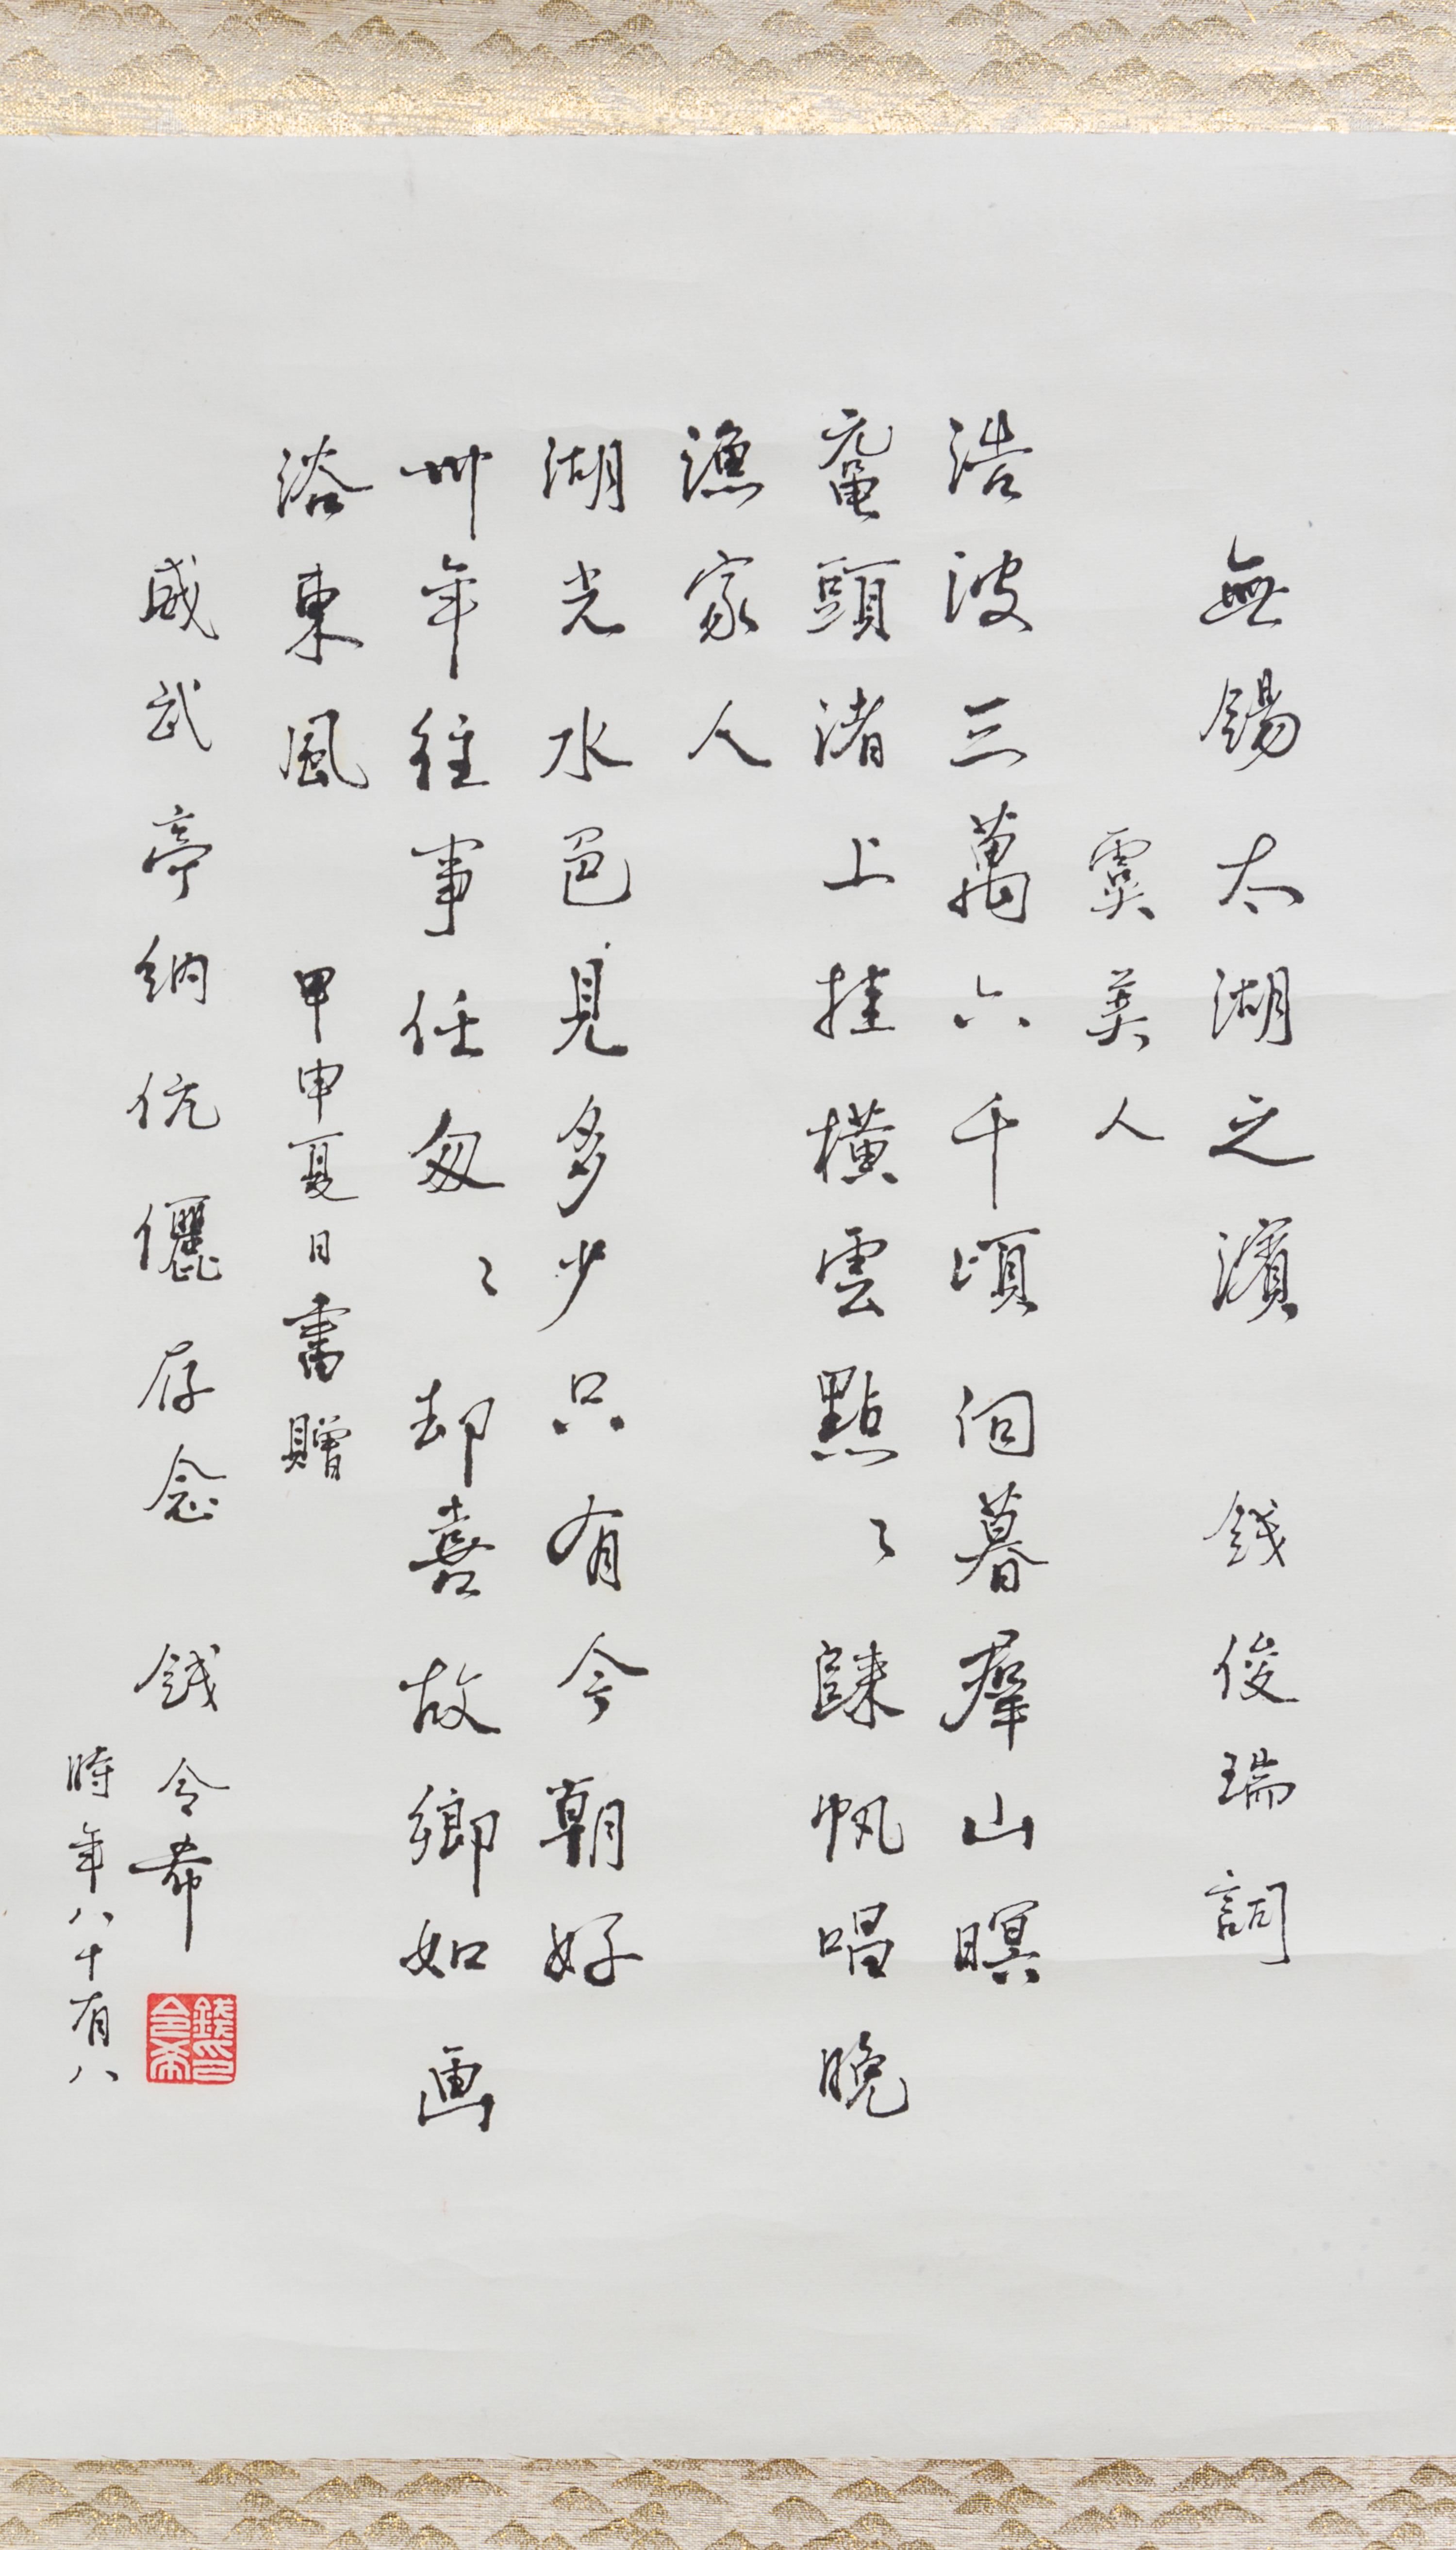 無錫太湖之濱 錢俊瑞詞
虞美人
浩波三萬六千頃 向暮羣山暝
黿頭渚上挂橫雲 點〻歸帆唱晚
漁家人
湖光水色見多少 只有今朝好
卌年往事任匆〻 却喜故鄉如画
浴東風 甲申夏日書贈
威武亭納伉儷存念 錢令希
時年八十有八
錢令希印